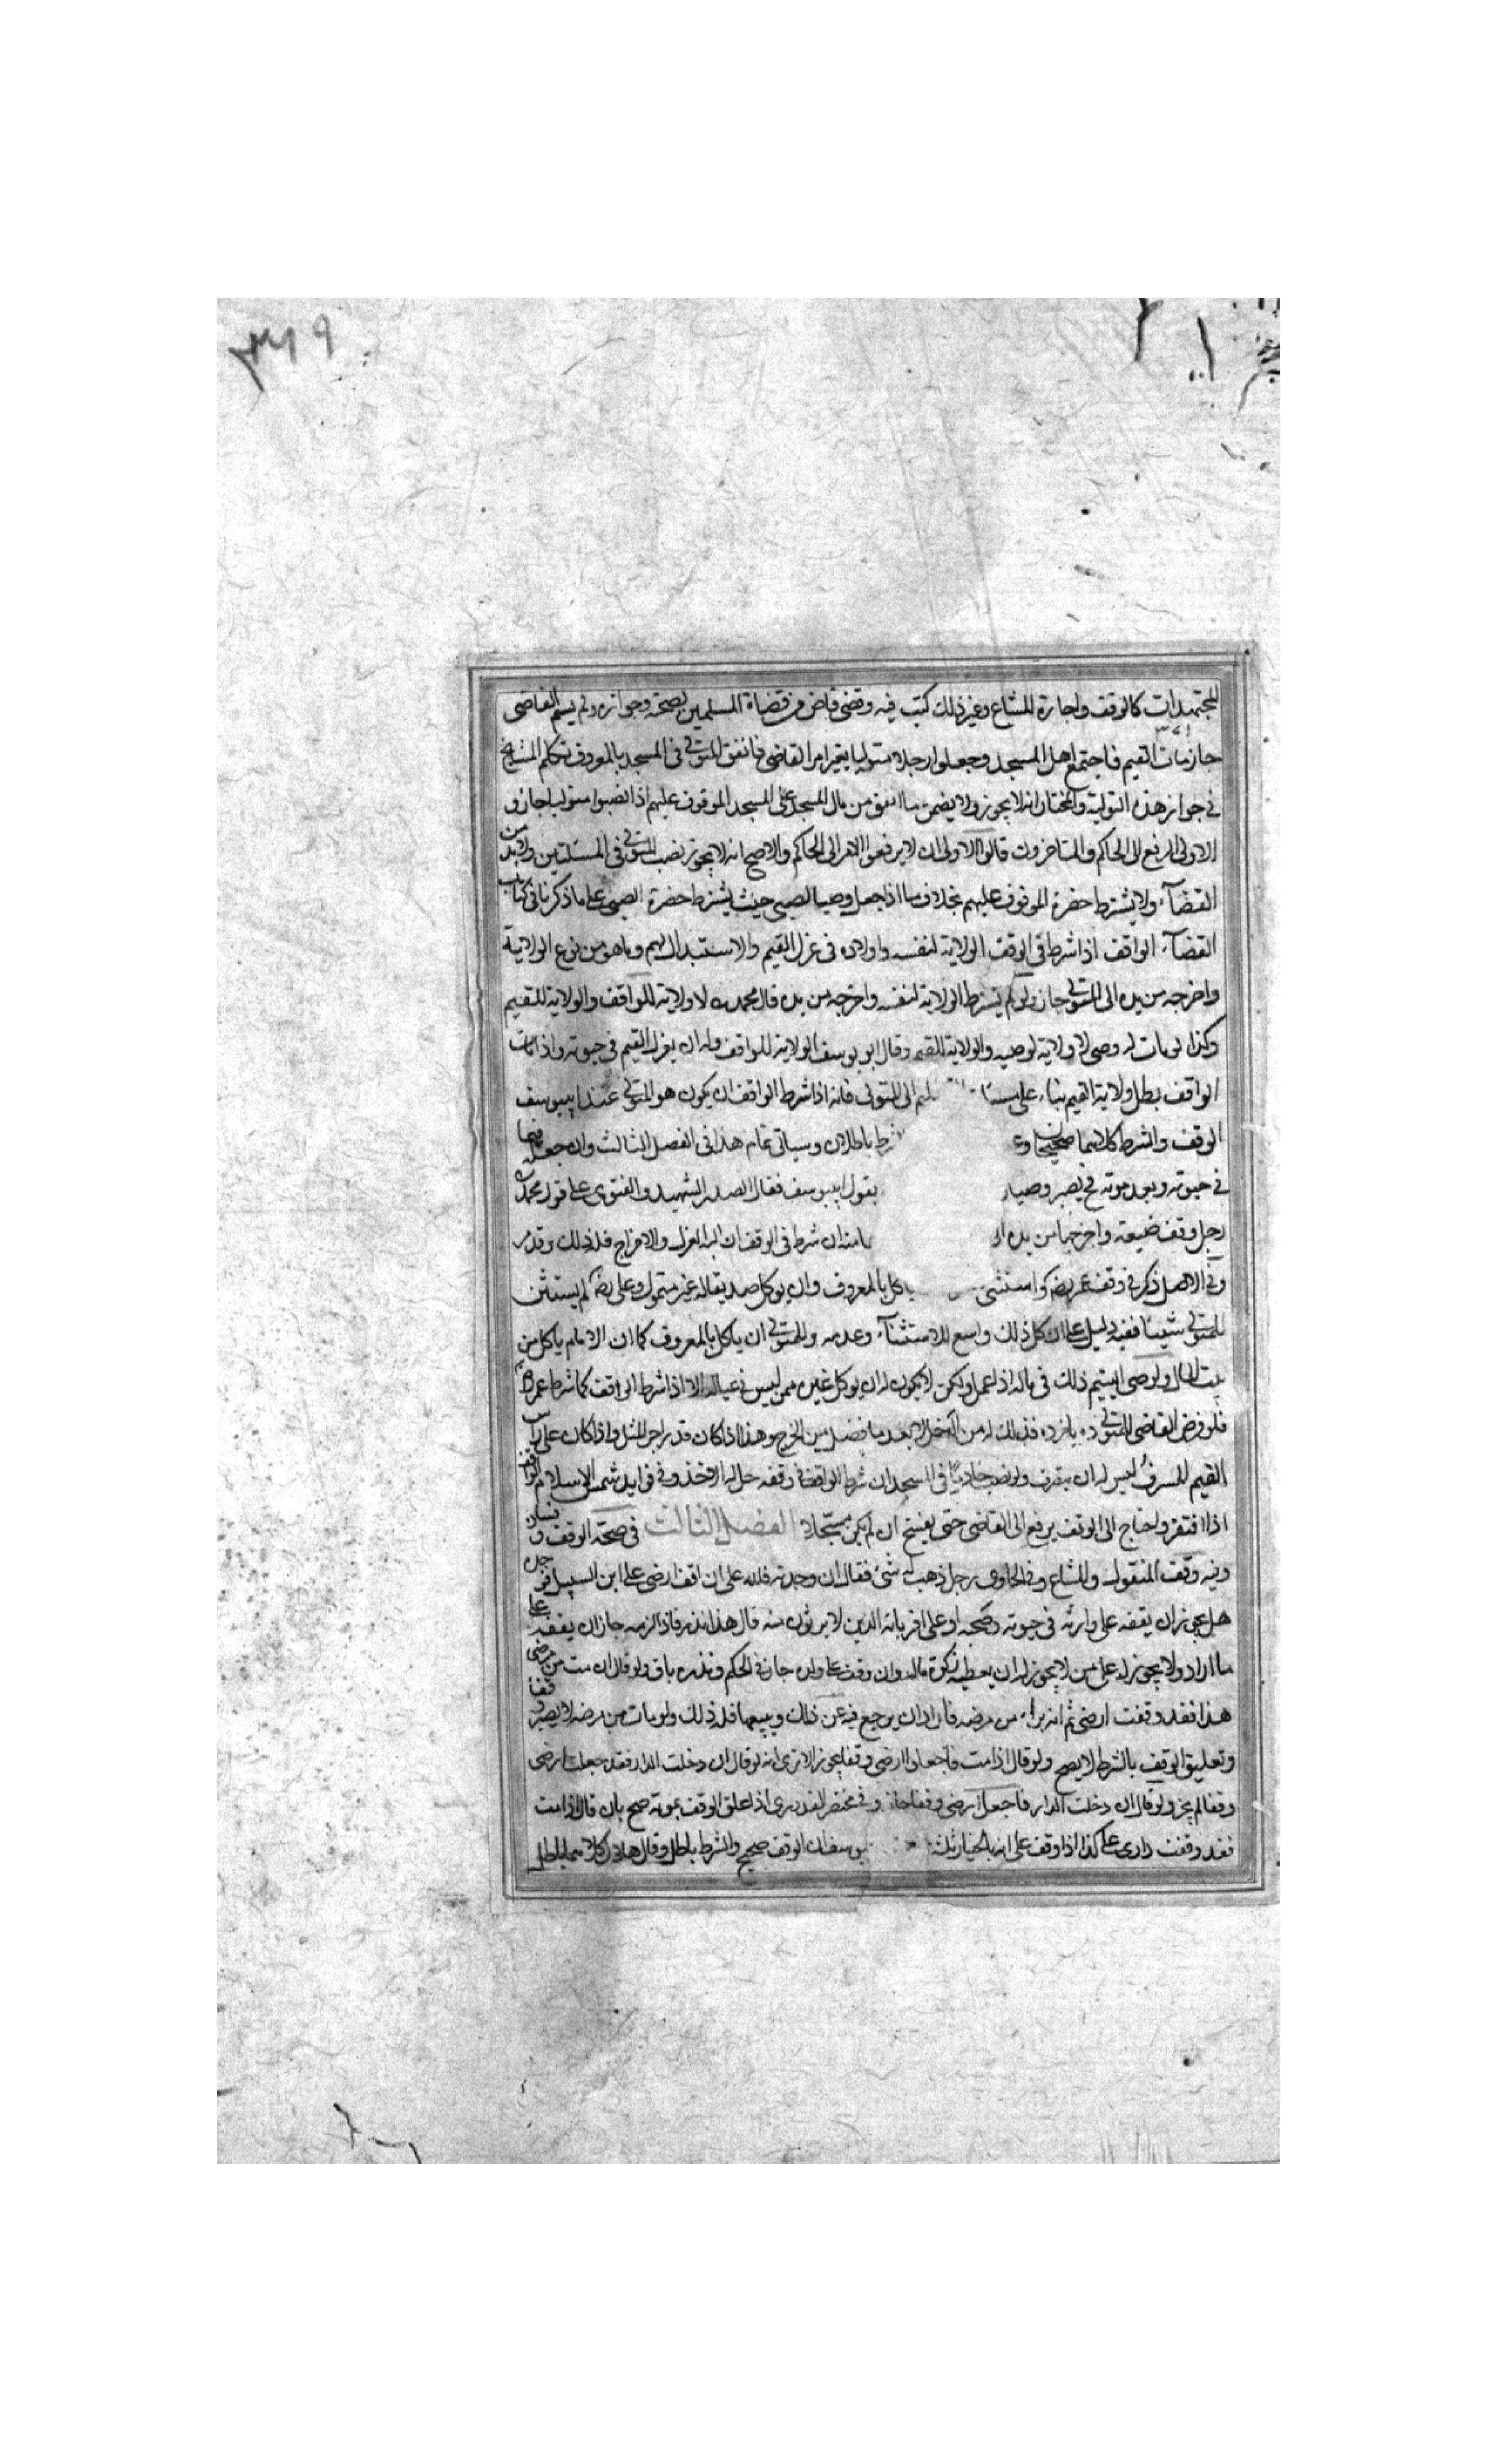 ٣٦٩
المجتهدات كالوقف واجارة المشاع وغير ذلك كتب فيه وقضى قاض من قضاة المسلمين بصحته وجوازه ولم يسم القاضى
جاز مات القيم فاجتمع اهل المسجد وجعلوا رجلا متوليا بغير امر القاضى فانفق المتولى فى المسجد بالمعروف تكلم المشايخ
فى جواز هذه التولية والمختار انه لا يجوز ولا يضمن ما انفق من مال المسجد على المسجد الموقوف عليهم اذا نصبوا متوليا جاز و
الاولى الرفع الى الحاكم والمتاخرون قالوا الاولى ان لا يرفعوا الامر الى الحاكم والاصح انه لا يجوز نصب المتولى فى المسئلتين ولا بد من
القضآء ولا يشترط حضرة الموقوف عليهم بخلاف ما اذا جعل وصيا لصبى حيث يشترط حضرة الصبى على ما ذكرنا فى كتاب
القضآء الواقف اذا شرط فى الوقف الولاية لنفسه واولاده فى عزل القيم والاستبدال بهم وما هو من نوع الولاية
واخرجه من يده الى المتولى جاز ولو لم يشترط الولاية لنفسه واخرجه من يده قال محمد لا ولاية للواقف والولاية للقيم
وكذا لو مات له وصى لا ولاية لوصيه والولاية للقيم وقال ابو يوسف الولاية للواقف وله ان يعزل القيم فى حيوته واذا مات
الواقف بطل ولاية القيم بناء على الى المتولى فانه اذا شرط الواقف ان يكون هو المتولى عند ابيوسف
الوقف والشرط كلاهما صحيحان و باطلان وسياتى تمام هذا فى الفصل الثالث وان جعله قيما
فى حيوته وبعد موته يصير وصيا بقول ابيوسف فقال الصدر الشهيد والفتوى على قول محمد
رجل وقف ضيعته واخرجها من يده ان شرط فى الوقف ان له العزل والاخراج فله ذلك وقد مر
وفى الاصل ذكر فى وقف عمر رضه واستثنى ياكل بالمعروف وان يوكل صديقا له غير متمول وعلى رضه لم يستثن
للمتولى شيئا ففيه دليل على ان كل ذلك واسع للاستثنآء وعدمه وللمتولى ان ياكل بالمعروف كما ان الامام ياكل من
بيت المال ولوصى اليتيم ذلك فى ماله اذا عمل ولكن لا يكون له ان يوكل غيره ممن ليس فى عياله الا اذا شرط الواقف كما شرط عمر رضه
فلو فرض القاضى للمتولى ده يازده فذلك له من الدخل لا بعد ما فضل من الخرج وهذا اذا كان قدر اجر المثل واذا كان على راس
القيم المسرف ليس له ان يتصرف ولو نصب خادما فى المسجد ان شرط الواقف فى وقفه حل له الاخذ وفى فوايد شمس الاسلام الواقف
اذا افتقر واحتاج الى الوقف يرفع الى القاضى حتى يفسخ ان لم يكن مسجلا الفصل الثالث فى صحة الوقف و فساده
وفيه وقف المنقول والمشاع وفى الحاوى رجل ذهب له شئ فقال ان وجدته فلله على ان اقف ارضى على ابن السبيل فوجده
هل يجوز ان يقفه على وارثه فى حيوته وصحته او على اقربائه الذين لا يرثون منه قال هذا نذر فاذا لزمه جاز ان يقفه على
ما اراد ولا يجوز له على من لا يجوز له ان يعطيه زكوة ماله وان وقف على ولده جاز فى الحكم ونذره باق ولو قال ان مت من مرضى
هذا فقد وقفت ارضى ثم انه برأ من مرضه فاراد ان يرجع فيه عن ذلك ويبيعها فله ذلك ولو مات من مرضه لا يصير وقفا
وتعليق الوقف بالشرط لا يصح ولو قال اذا مت فاجعلوا ارضى وقفا يجوز الا ترى انه لو قال ان دخلت الدار فقد جعلت ارضى
وقفا لم يجز ولو قال ان دخلت الدار فاجعل ارضى وقفا جاز وفى مختصر القدورى اذا علق الوقف بموته صح بان قال اذا مت
فقد وقفت دارى على كذا اذا وقف على انه بالخيار ثلثة يوسف ان الوقف صحيح والشرط باطل وقال هلال كلاهما باطل